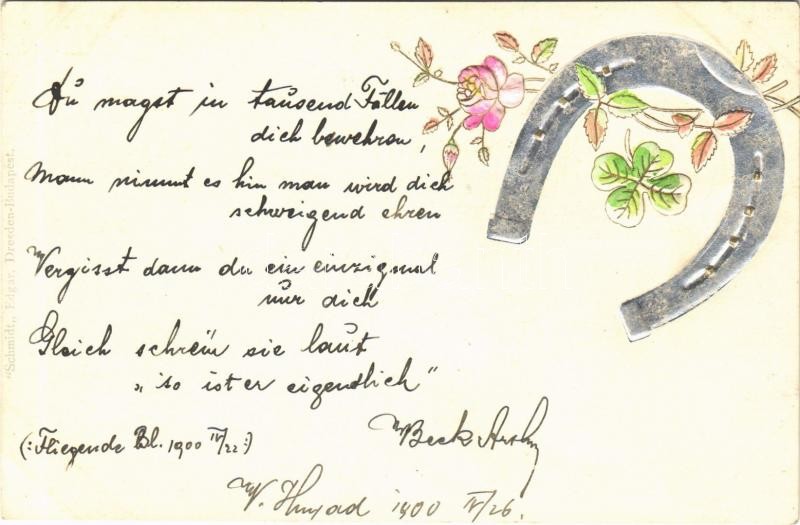 Du magst in tausend Fällen
dich bewehren,
Mann nimmt es hin man wird dich
schweigend ehren
Vergisst dann du ein einzigmal
nur dich
Gleich schrein sie laut
„so ist er eigendlich"
(:Fliegende Bl. 1900 IV/22:)
Beck
V. Hunyad 1900 IV/26.
"Schmidt„ Edgar, Dresden-Budapest.